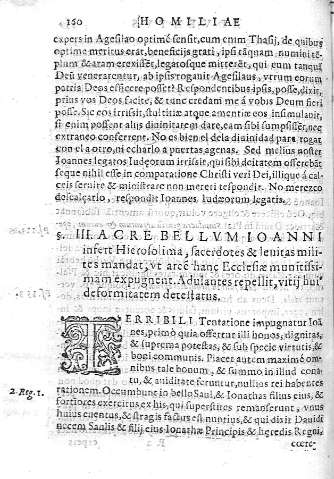 160 HOMILIAE
expers in Agesilao optimè sensit, cum enim Thasij, de quibus
optimè meritus erat, beneficijs grati, ipsi tãquam numini tẽ-
plum & aram erexissẽt, legatosque mitterẽt, qui eum tanquã
Deũ venerarentur, ab ipsis rogauit Agesilaus, vtrum eorum
patria Deos efficere posset? Respondentibus ipsis, posse, dixit,
prius vos Deos facite, & tunc credam me á vobis Deum fieri
posse. Sic eos irrisit, stultitiæ atque amentiæ eos insimulauit,
si enim possent alijs diuinitatem dare, eam sibi sumpsissẽt, nec
extraneo conferrent. No es bien el dela diuinidad para rogar
con el a otro, ni echarlo a puertas agenas. Sed melius noster
Ioannes legatos Iudæorum irrisit, qui sibi deitatem offerebãt
seque nihil esse in comparatione Christi veri Dei, illique á cal-
ceis seruire & ministrare non mereri respondit. No merezco
descalçarlo, respondit Ioannes Iudæorum legatis.
§. III. ACRE BELLVM IOANNI
infert Hierosolima, sacerdotes & leuitas milites
mandat, vt arcẽ hanc Ecclesiæ munitissi-
mam expugnent. Adulantes repellit, vitij huius
deformitatem detestatus.
TERRIBILI Tentatione impugnatur Ioã-
nes, primò quia offertur illi honos, dignitas,
& suprema potestas, & sub specie virtutis, &
boni communis. Placet autem maximè om-
nibus tale bonum, & summo in illud cona-
tu, & auiditate feruntur, nullius rei habentes
rationem. Occumbunt in bello Saul, & Ionathas filius eius, &
2. Reg. 1. fortiores exercitus ex his, qui superstites remanserunt, vnus
huius euentus, & stragis factus est nuntius, & qui dixit Dauidi
necem Saulis & filij eius Ionathæ Principis & heredis Regni,